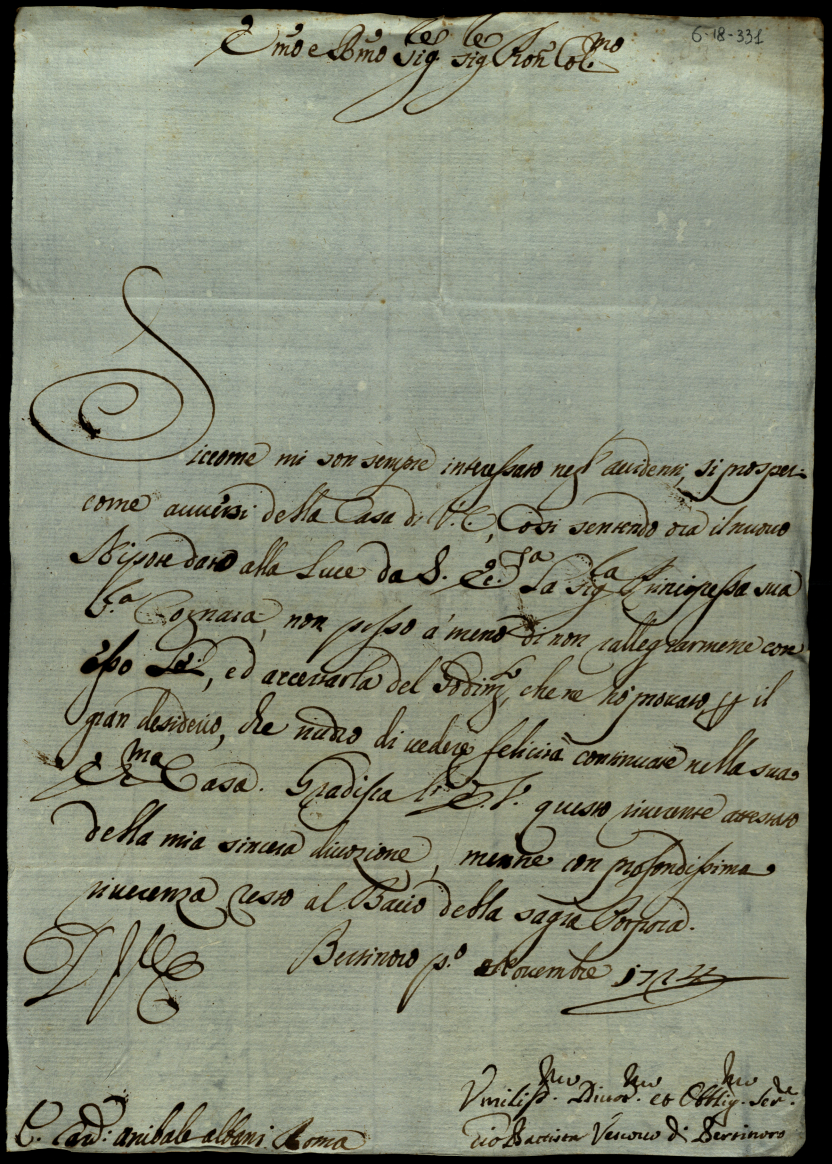 6-18-331
Emo e Rmo Sig.re Sig.re Pron Col.mo
Siccome mi son sempre interessato negl' accidenti, si prosperi
come avversi della Casa di V. E., Così sentendo ora il nuovo
Nipote dato alla Luce da S. Ecc.za La Sig.ra Principessa sua
Cognata, non posso a' meno di non rallegrarmene con
esso Lei, ed accertarla del Godim.to, che ne ho provato, il
gran desiderio, che nudro di vedere felicità continuate nella sua
Ecc.ma Casa. Gradisca l' E. V. questo riverente attestato
della mia sincera divozione, mentre con profondissima
riverenza resto al Bacio della sagra Porpora.
D V E Bertinoro p.o Novembre 1724
Vmiliss.mo Divot.mo et Obblig.mo Ser.re
E. Card: Anibale Albani Roma
Gio Battista Vescovo di Bertinoro